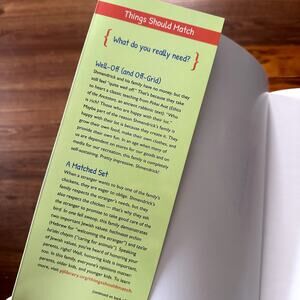 Things Should Match
{ What do you really need? }
Well-Off (and Off-Grid)
Shmendrick and his family have no money, but they
still feel "quite well off." That's because they take
to heart a classic teaching from Pirkei Avot (Ethics
of the Ancestors, an ancient rabbinic text): "Who
is rich? Those who are happy with their lot."
Maybe part of the reason Shmendrick's family is
happy with their lot is because they create it. They
grow their own food, make their own clothes, and
provide their own fun. In an age when most of
us are dependent on stores for our goods and on
media for our recreation, this family is completely
self-sustaining. Pretty impressive, Shmendrick!
A Matched Set
When a stranger wants to buy one of the family's
chickens, they are eager to oblige. Shmendrick's
family respects the stranger's needs, but they
also respect the chicken — that's why they ask
the stranger to promise to take good care of the
bird. In one fell swoop, this family demonstrates
two important Jewish values: hachnasat orchim
(Hebrew for "welcoming the stranger") and tza'ar
ba'alei chayim ("caring for animals"). Speaking
of Jewish values, you've heard of honoring your
parents, right? Well, honoring kids is important,
too. In this family, everyone's opinions matter:
parents, older kids, and younger kids. To learn
more, visit pjlibrary.org/thingsshouldmatch.
(continued on back